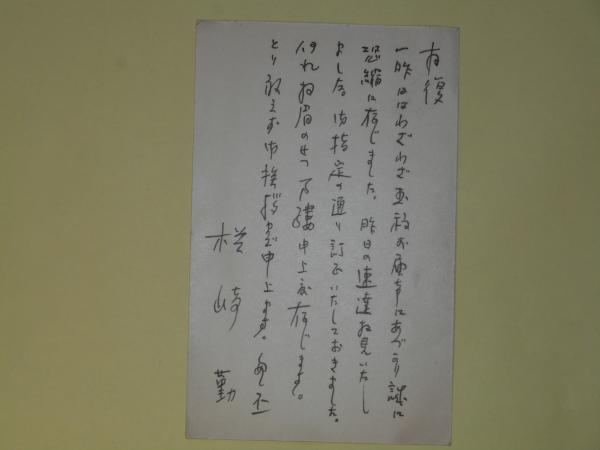 拝復
一昨日はわざわざ玉稿お届け下さり誠に
恐縮に存じました。昨日の速達拝見いたし
ました。御指定の通り訂正いたしておきました。
何れ拝眉のせつ万縷申上度存じます。
とり敢えず御挨拶まで申上ます。
楢崎 勤